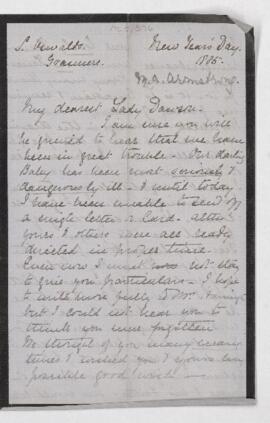 St Oswald's New Year's Day.
Grasmere. 1885.
M. A. Armstrong
My dearest Lady Dawson.
I am sure you will
be grieved to hear that we have
been in great trouble - Our darling
Baby has been most seriously &
dangerously ill - & until today
I have been unable to send off
a single letter or Card. altho'
yours & others were all ready
directed in proper time.
Even now I must not stay
to give you particulars - I hope
to write more fully to Mr.
but I could not bear you to
think you were forgotten
We thought of you many many
times & wished you & yours every
possible good wish -